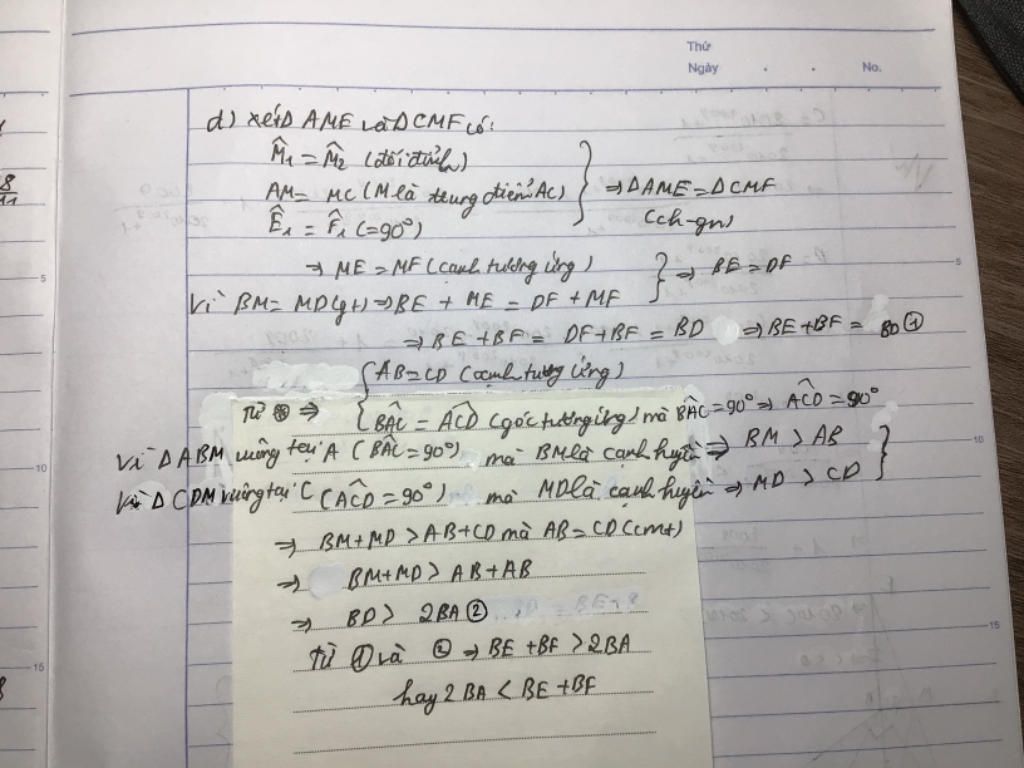 Thứ
Ngày . . No.
d) xét Δ AME và Δ CMF có:
M̂₁ = M̂₂ (đối đỉnh)
AM = MC (M là trung điểm AC) ⇒ Δ AME = Δ CMF
Ê₁ = F̂₁ (=90°) (ch-gn)
⇒ ME = MF (cạnh tương ứng) ⇒ BE = DF
Vì BM = MD (gt) ⇒ BE + ME = DF + MF
⇒ BE + BF = DF + BF = BD ⇒ BE + BF = BD ①
AB = CD (cạnh tương ứng)
Từ ⇒ BÂC = AĈD (góc tương ứng) mà BÂC = 90° ⇒ AĈD = 90°
Vì Δ ABM vuông tại A (BÂC = 90°) mà BM là cạnh huyền ⇒ BM > AB
Vì Δ CDM vuông tại C (AĈD = 90°) mà MD là cạnh huyền ⇒ MD > CD
⇒ BM + MD > AB + CD mà AB = CD (cmt)
⇒ BM + MD > AB + AB
⇒ BD > 2BA ②
Từ ① và ② ⇒ BE + BF > 2BA
hay 2BA < BE + BF
5
10
15
5
10
15